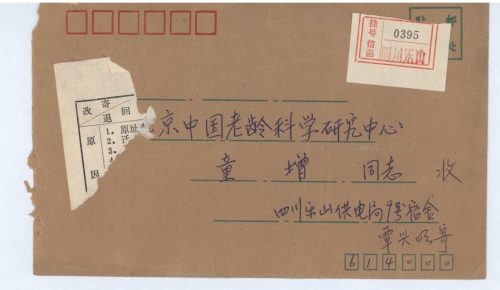 挂号信函
0395
四川乐山
贴邮
票处
改寄
退回
原因
1. 原址
2. 迁
3.
4.
京中国老龄科学研究中心
童增 同志 收
四川乐山供电局9号宿舍
覃兴明寄
614000